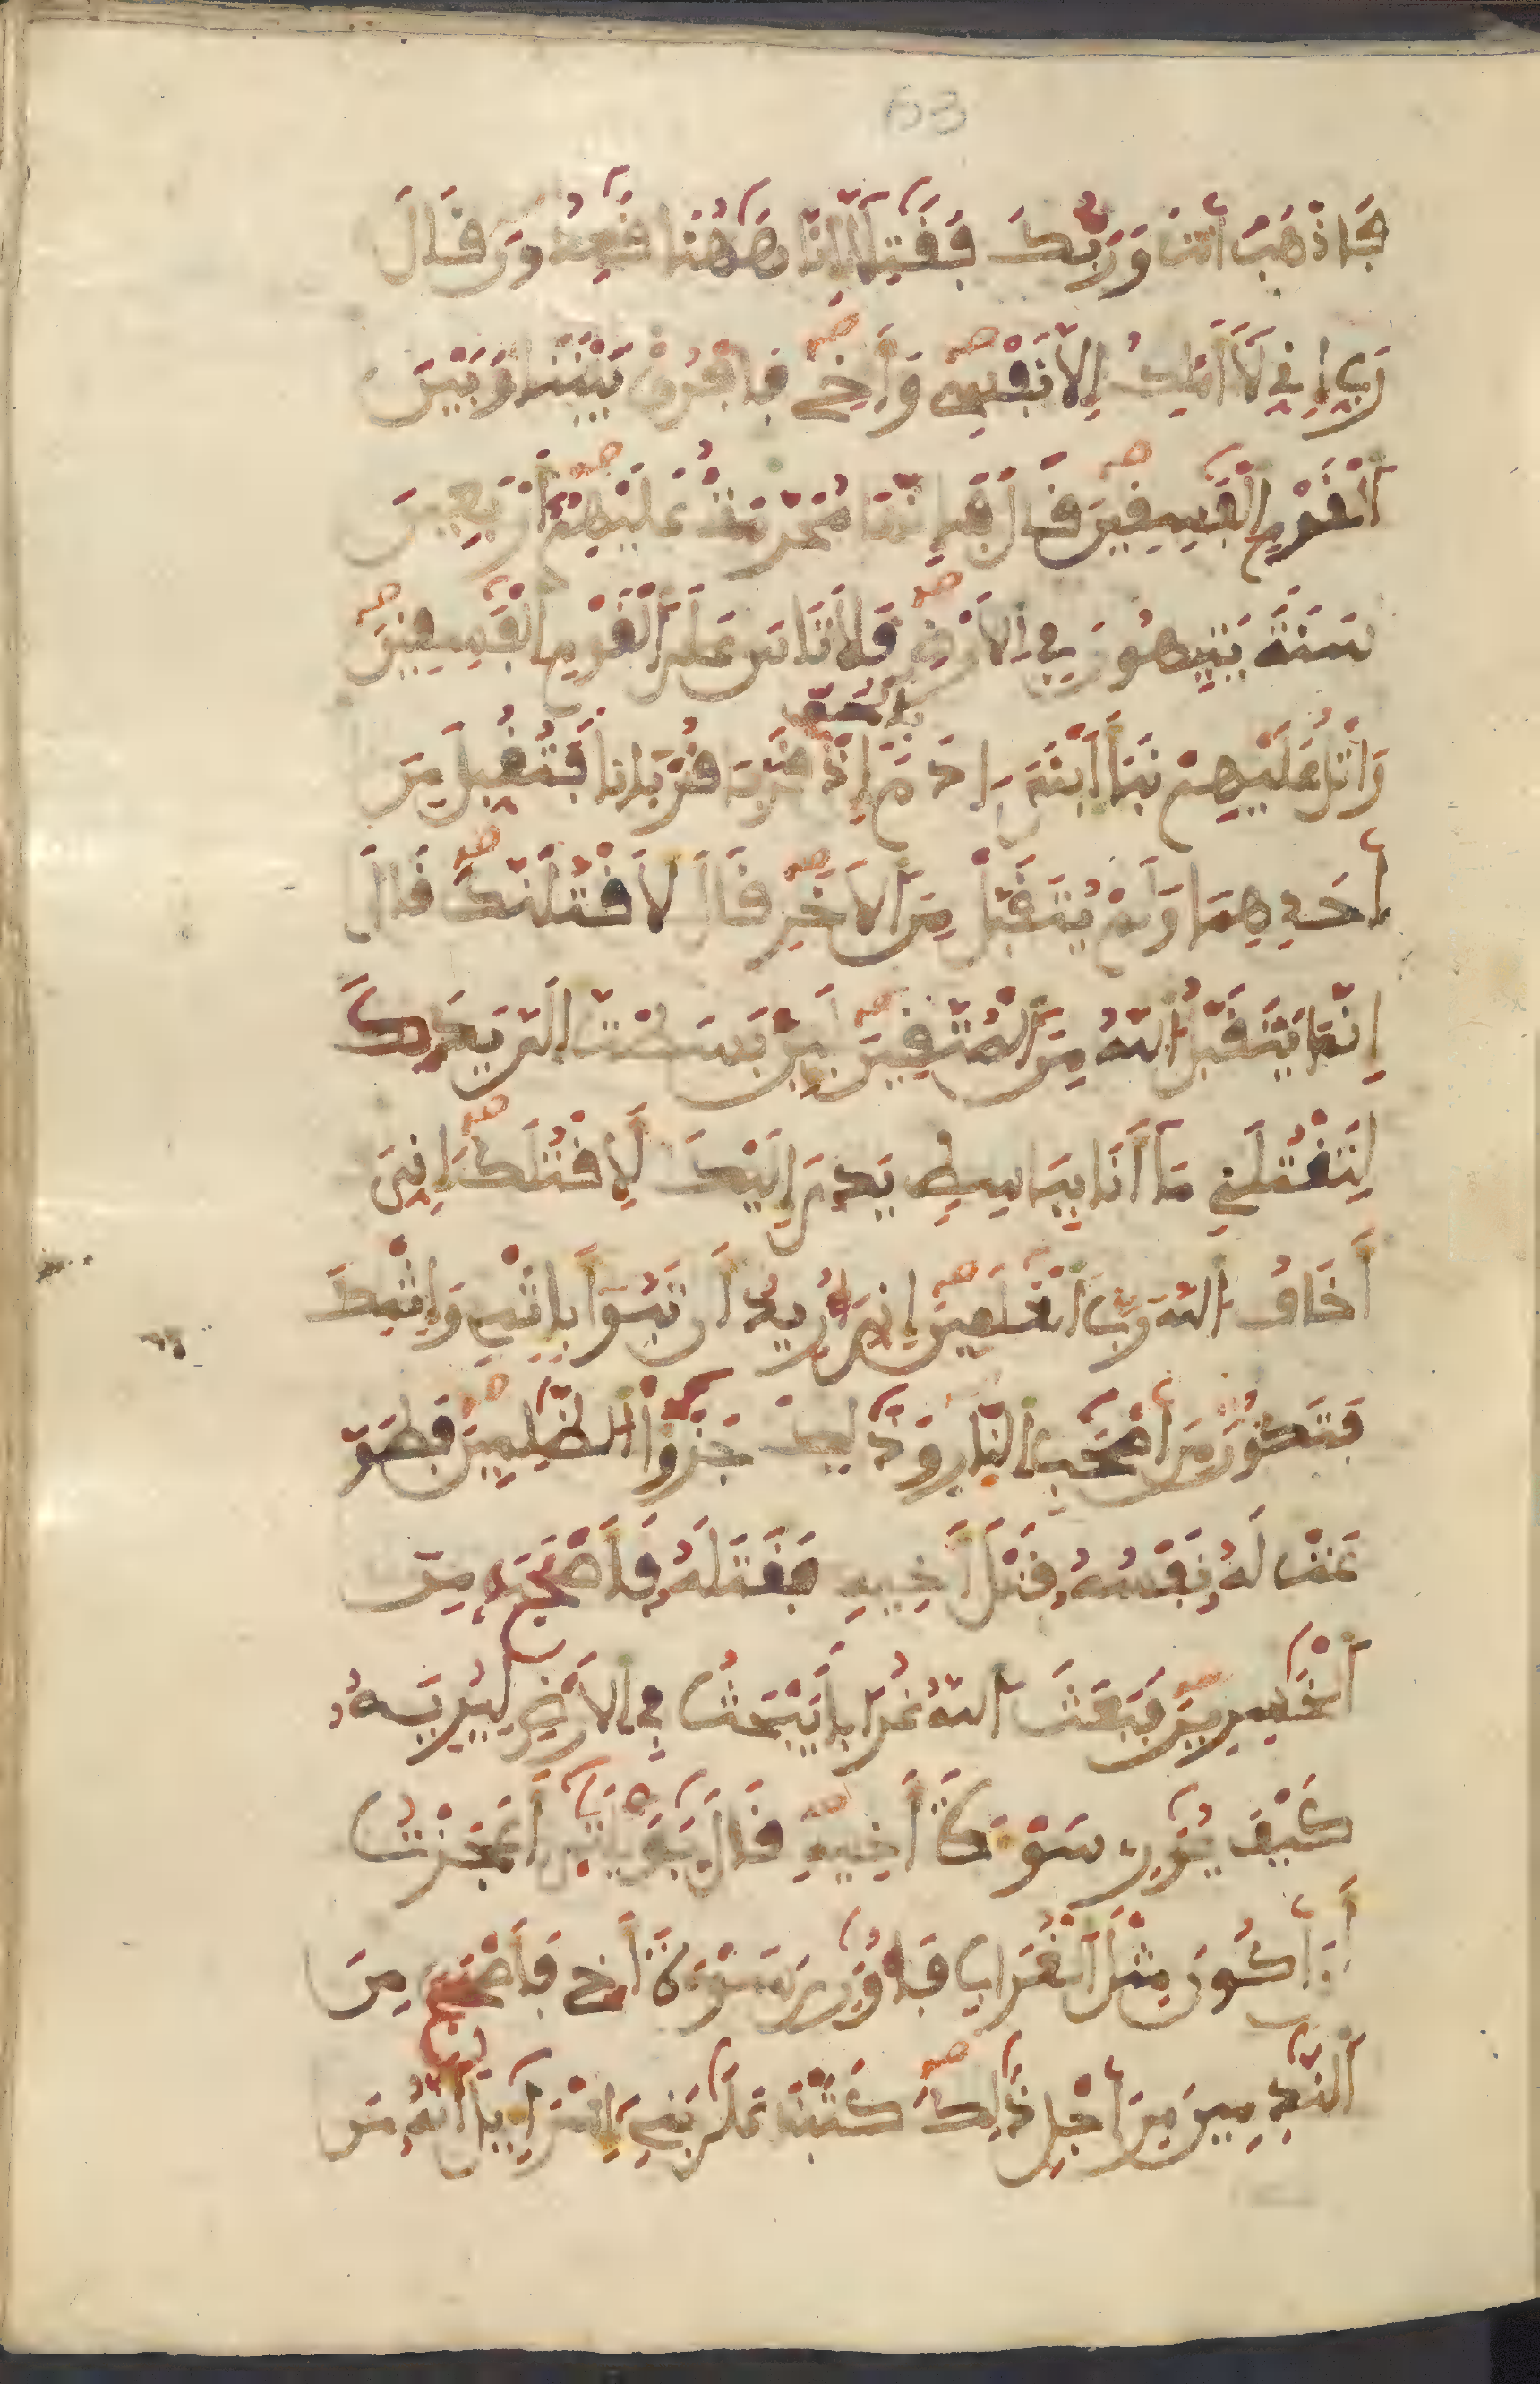 63
فَاذْهَبَ اَنتَ وَرَبُّكَ فَقَٰتِلَآ إِنَّا هَٰهُنَا قَٰعِدُونَ قَالَ
رَبِّ إِنِّي لَآ أَمْلِكُ إِلَّا نَفْسِي وَأَخِي فَافْرُقْ بَيْنَنَا وَبَيْنَ
اَلْقَوْمِ اِلْفَٰسِقِينَ قَالَ فَإِنَّهَا مُحَرَّمَةٌ عَلَيْهِمُ أَرْبَعِينَ
سَنَةً يَتِيهُونَ فِي اِلَارْضِ فَلَا تَاسَ عَلَى اَلْقَوْمِ اِلْفَٰسِقِينَ
وَاتْلُ عَلَيْهِمْ نَبَأَ اَبْنَيَ ادَمَ بِالْحَقِّ إِذْ قَرَّبَا قُرْبَانًا فَتُقُبِّلَ مِنَ
اَحَدِهِمَا وَلَمْ يُتَقَبَّلْ مِنَ اَلَاخَرِ قَالَ لَأَقْتُلَنَّكَ قَالَ
إِنَّمَا يَتَقَبَّلُ اُللَّهُ مِنَ اَلْمُتَّقِينَ لَئِنْ بَسَطتَ إِلَيَّ يَدَكَ
لِتَقْتُلَنِي مَآ أَنَا بِبَاسِطٍ يَدِيَ إِلَيْكَ لِأَقْتُلَكَ إِنِّيَ
أَخَافُ اُللَّهَ رَبَّ اَلْعَٰلَمِينَ إِنِّيَ أُرِيدُ أَن تَبُوٓأَ بِإِثْمِي وَإِثْمِكَ
فَتَكُونَ مِنَ اَصْحَٰبِ اِلنَّارِ وَذَٰلِكَ جَزَٰٓؤُا اُلظَّٰلِمِينَ فَطَوَّ
عَتْ لَهُ نَفْسُهُ قَتْلَ أَخِيهِ فَقَتَلَهُ فَأَصْبَحَ مِنَ
اَلْخَٰسِرِينَ فَبَعَثَ اَللَّهُ غُرَابًا يَبْحَثُ فِي اِلَارْضِ لِيُرِيَهُ
كَيْفَ يُوَٰرِي سَوْءَةَ أَخِيهِ قَالَ يَٰوَيْلَتَىٰٓ أَعَجَزْتُ
أَنَ اَكُونَ مِثْلَ هَٰذَا اَلْغُرَابِ فَأُوَٰرِيَ سَوْءَةَ أَخِي فَأَصْبَحَ مِنَ
اَلنَّٰدِمِينَ مِنَ اَجْلِ ذَٰلِكَ كَتَبْنَا عَلَىٰ بَنِي إِسْرَآءِيلَ أَنَّهُ مَن